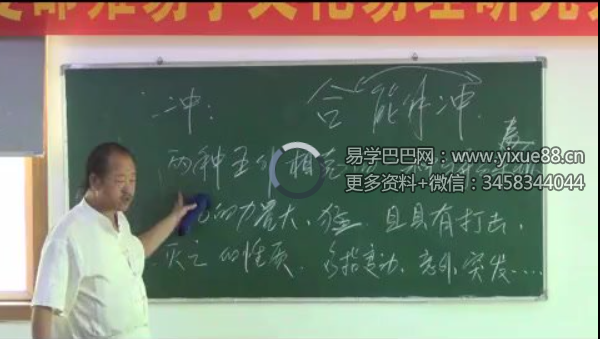 部推易学文化易经研究
二冲:
合 能解冲.
两种五行相克
的力量大、猛 且具有打击,
灭之的性质. 多指变动、意外、突发……
易学巴巴网:www.yixue88.cn
更多资料+微信:3458344044